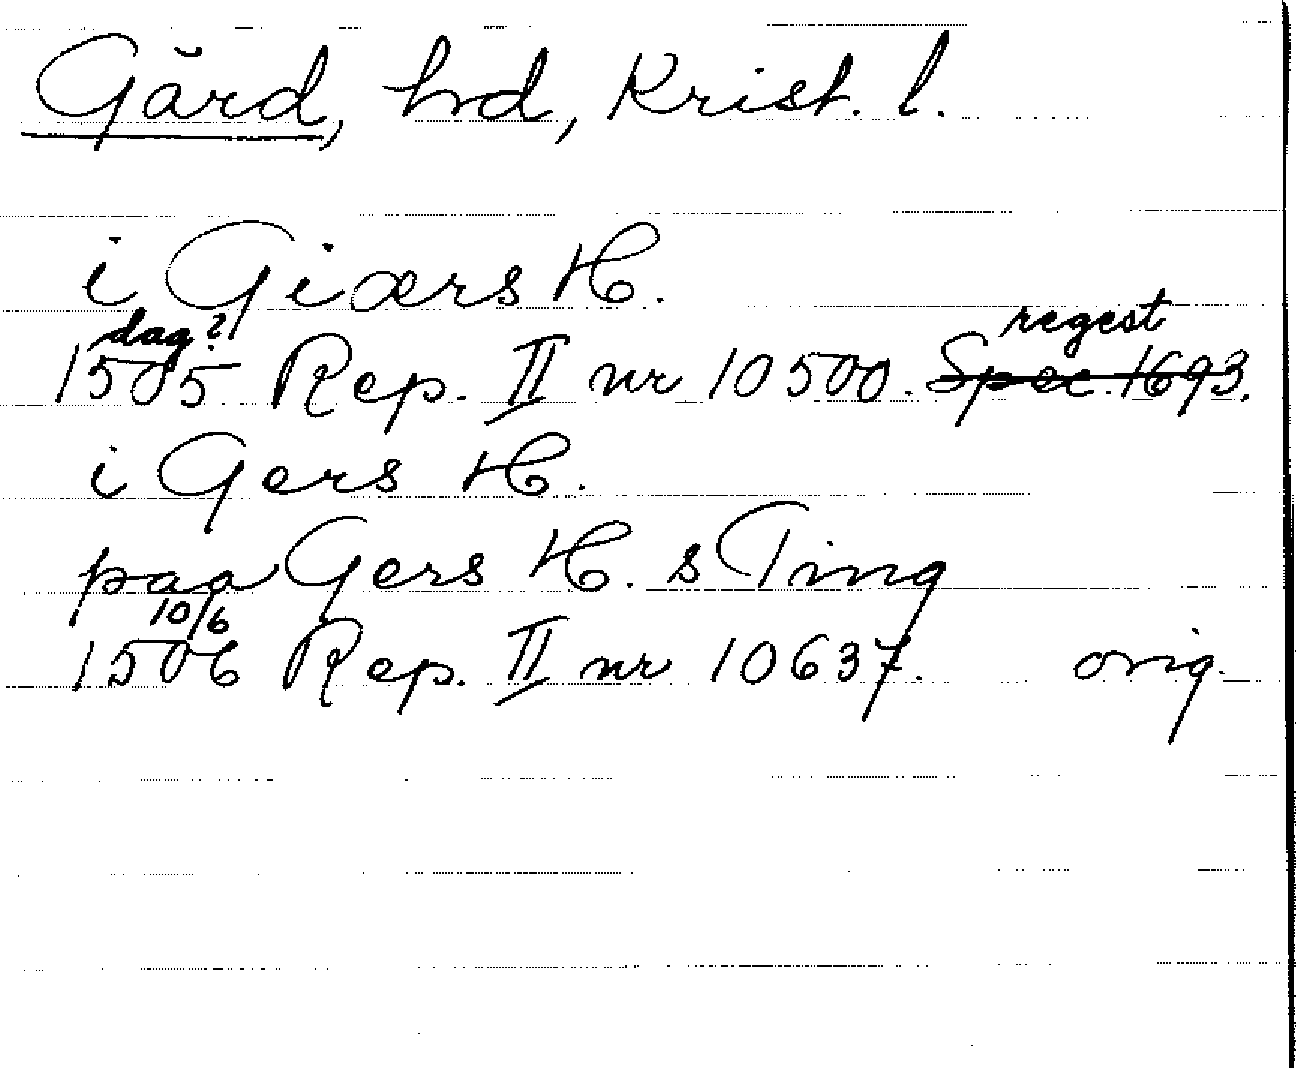 Gärd, hd, Krist. l.
i Giærs H.
dag? regest
1505 Rep. II nr 10500. Spec. 1693.
i Gers H.
paa Gers H. s Ting
10/6
1506 Rep. II nr 10637. orig.